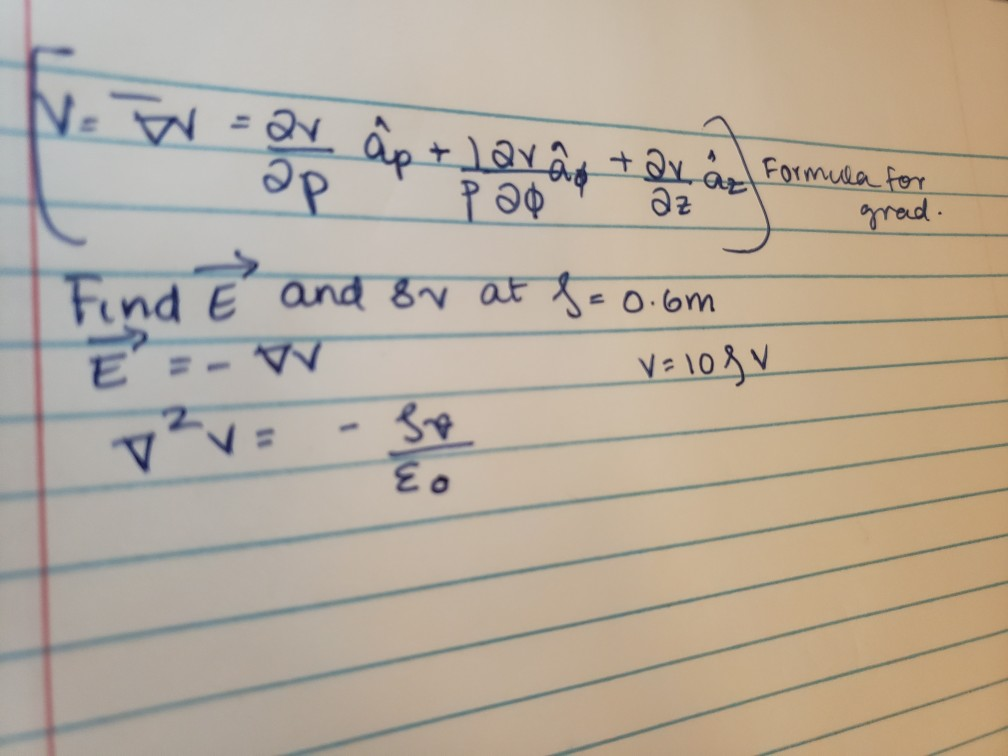 [V = ∇̅V = ∂v/∂ρ âρ + 1/ρ ∂v/∂ϕ âϕ + ∂v/∂z âz) Formula for
grad.
Find E⃗ and ϱv at ϱ = 0.6m
E⃗ = - ∇V V = 10ϱ V
∇²V = - ϱv/ε0